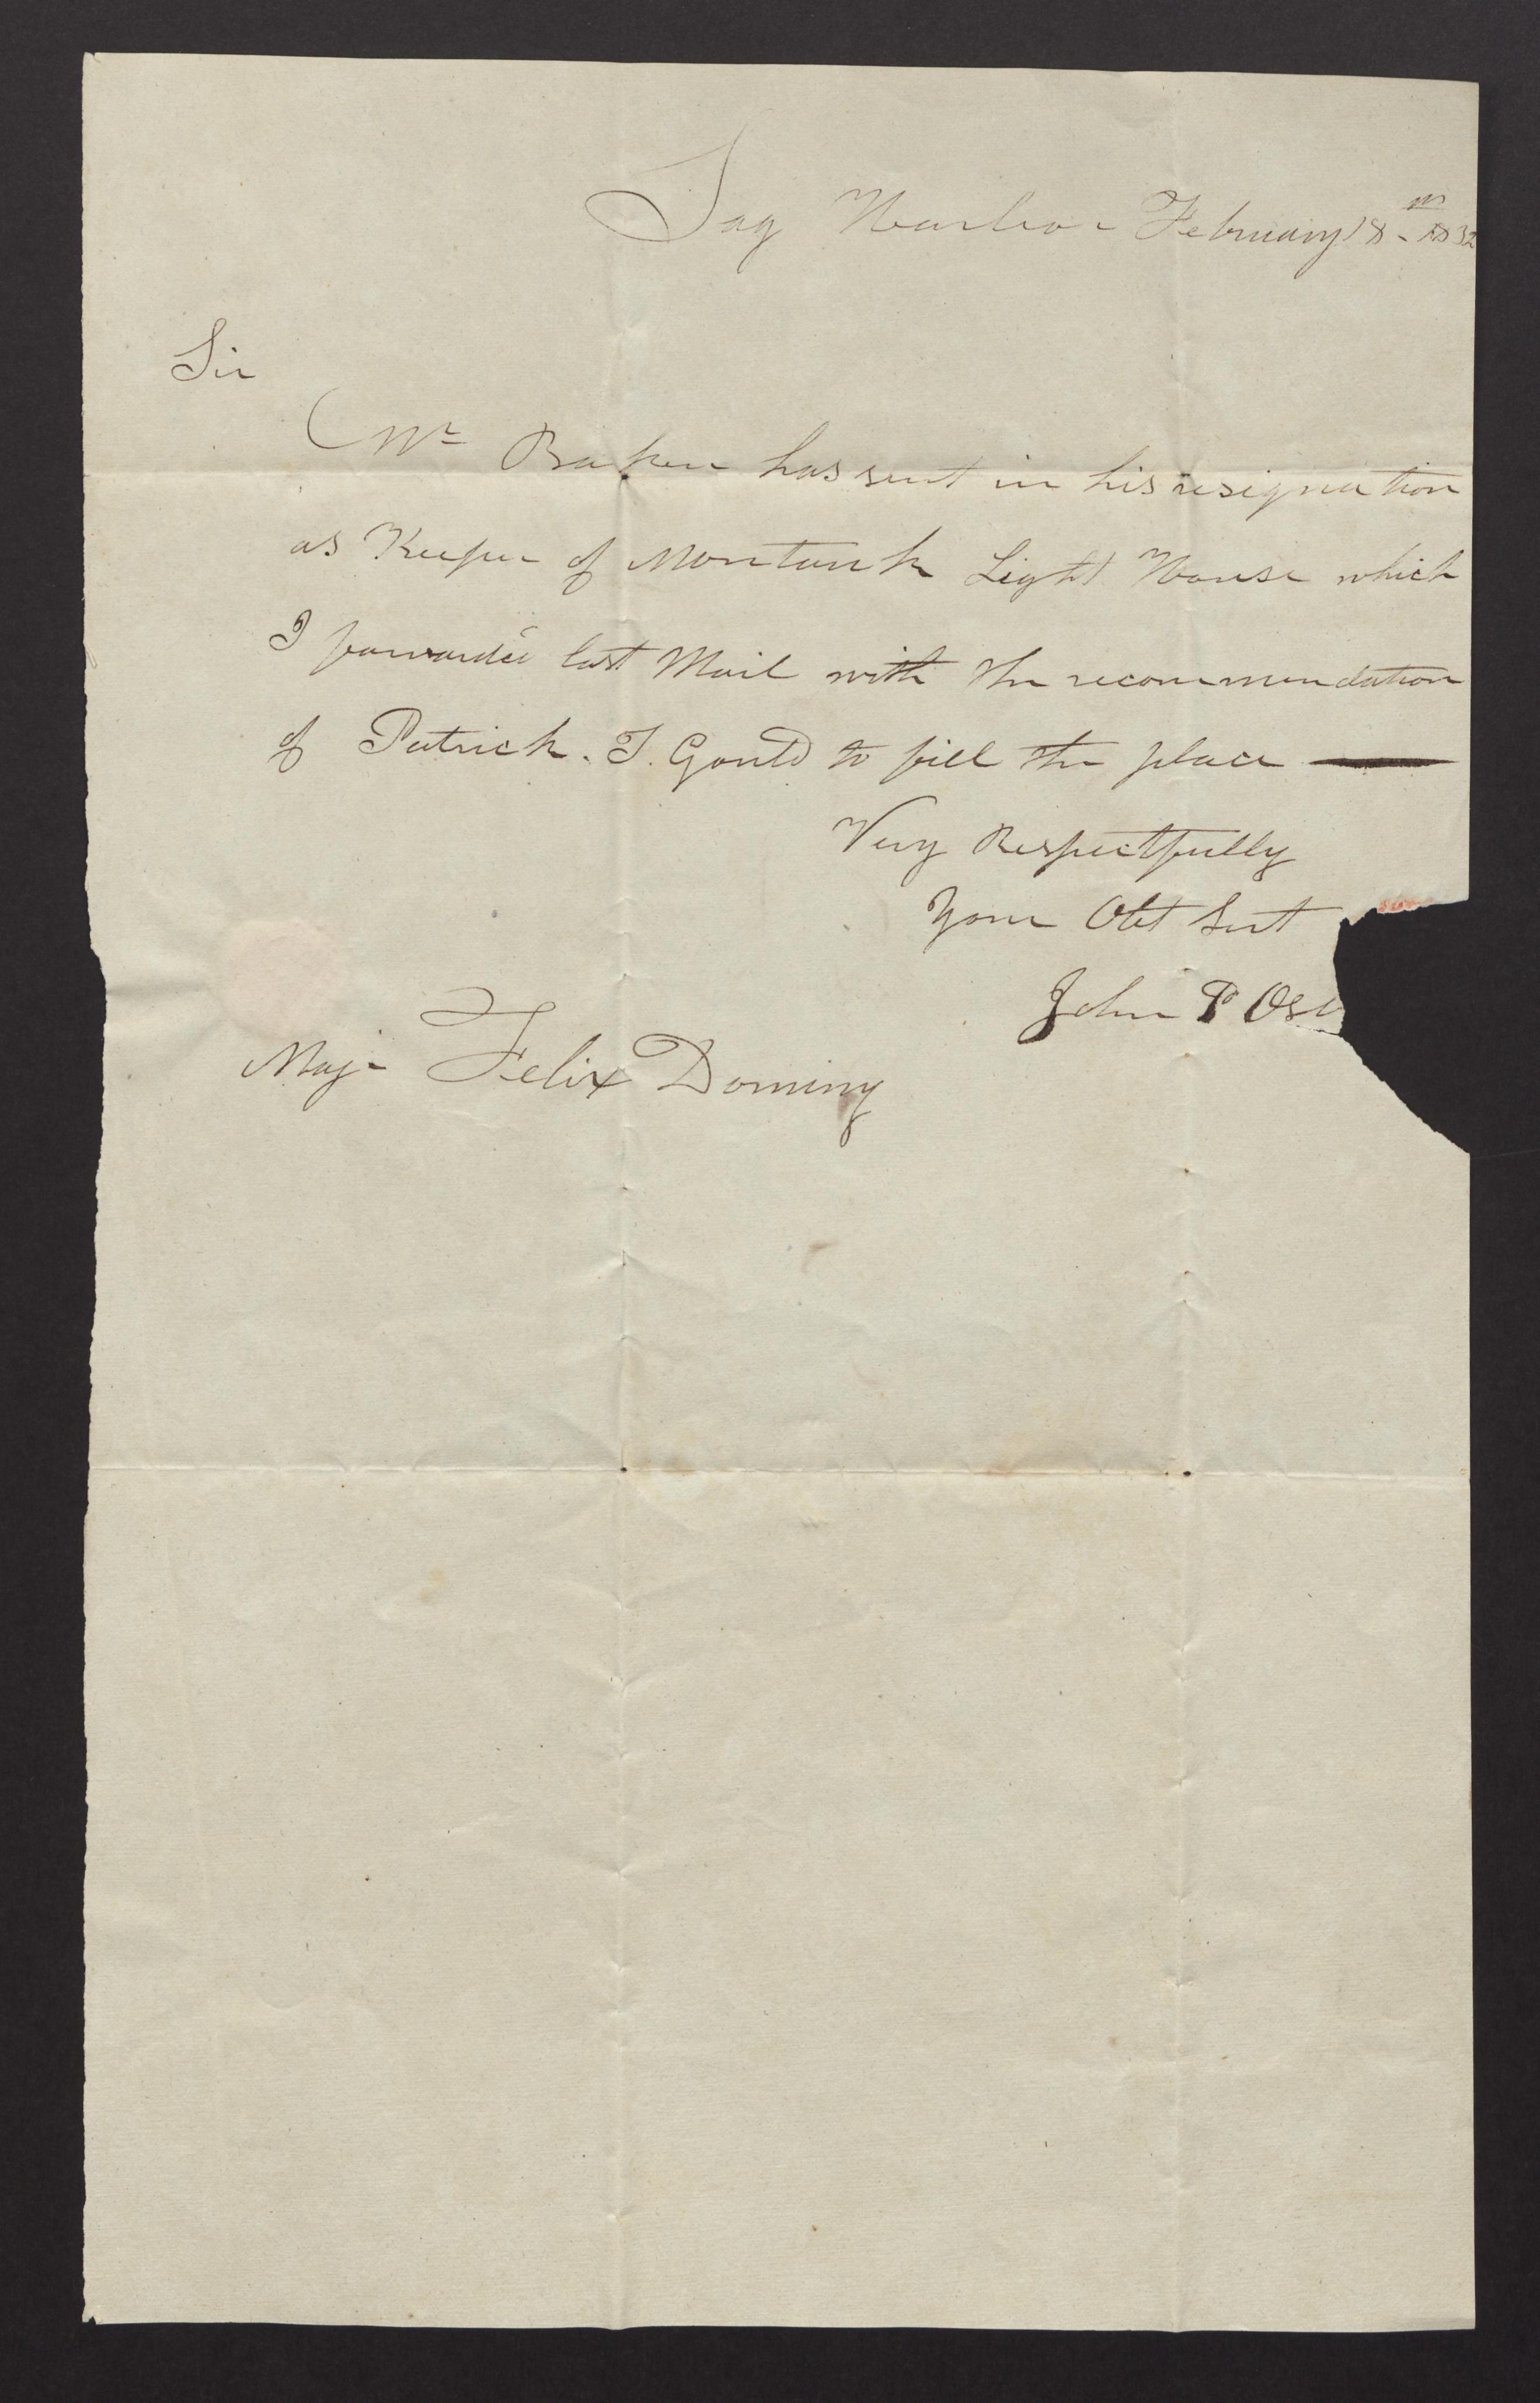 Sag Harbor February 18th 1832
Sir
Mr Baker has sent in his resignation
as Keeper of Montauk Light House which
I forwarded last Mail with the recommendation
of Patrick. T. Gould to fill the place
Very Respectfully
Your Obt Sert
John P Osb
Majr Felix Dominy